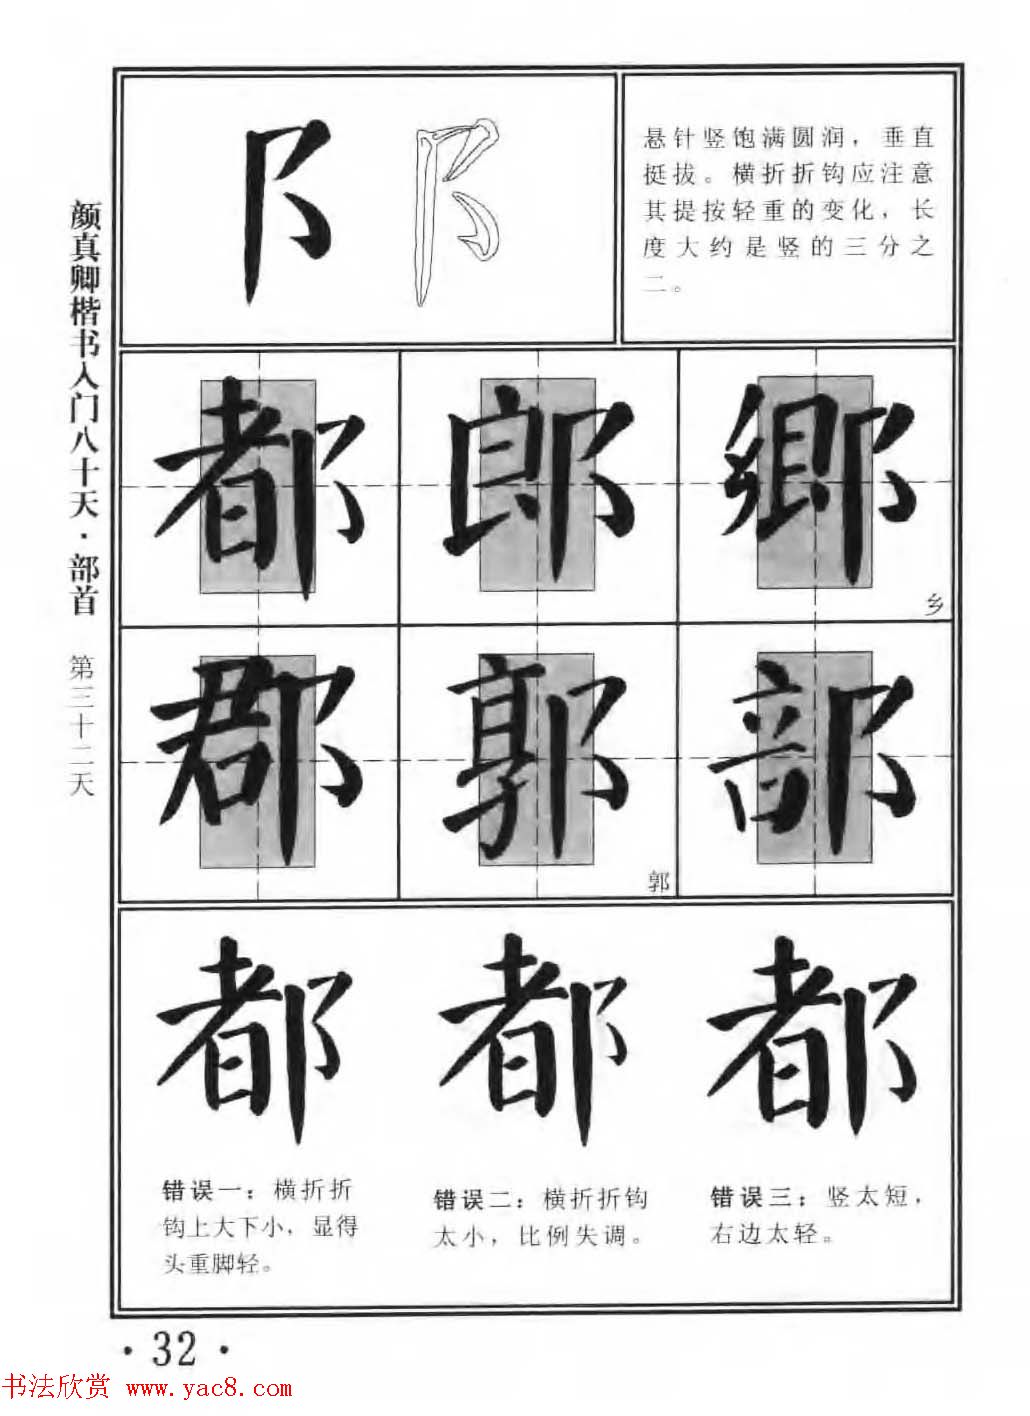 颜真卿楷书入门八十天·部首 第三十二天
阝
悬针竖饱满圆润，垂直
挺拔。横折折钩应注意
其提按轻重的变化，长
度大约是竖的三分之
二。
都 郎 鄉
乡
郡 郭 部
郭
都 都 都
错误一：横折折
钩上大下小，显得
头重脚轻。
错误二：横折折钩
太小，比例失调。
错误三：竖太短，
右边太轻。
·32·
书法欣赏 www.yac8.com